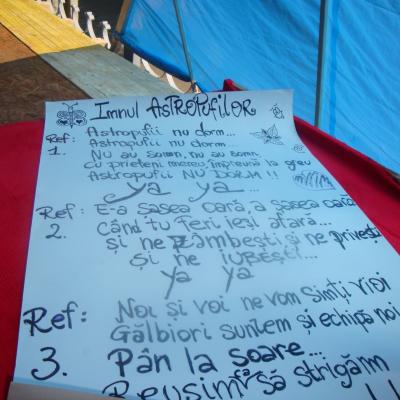 Imnul ASTROPUFILOR
Ref: Astropufii nu dorm...
Astropufii nu dorm...
1. Nu au somn, nu au somn
Cu prieteni mereu împreună la greu
Astropufii NU DORM!!
ya ya...
Ref: E-a șasea oară, a șasea oară
2. Când tu feri ieși afară...
și ne zâmbești și ne privești
și ne IUBEȘTI...
ya ya
Ref: Noi și voi ne vom simți vioi
Gălbiori suntem și echipa noi
3. Pân la soare...
Reușim să strigăm